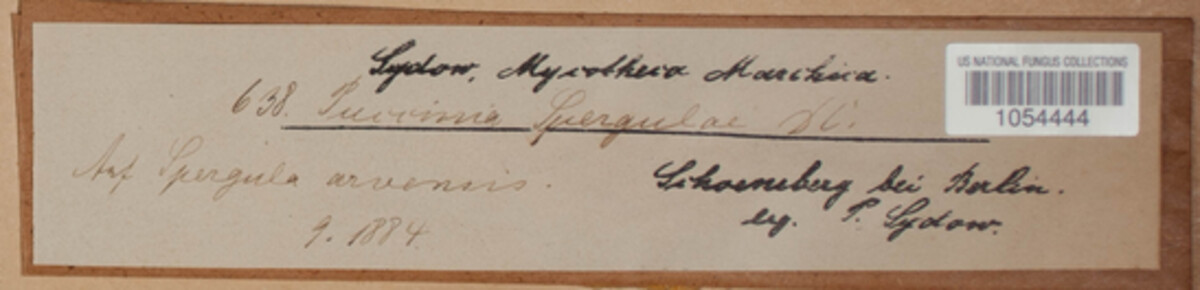 Sydow, Mycotheca Marchica.
US NATIONAL FUNGUS COLLECTIONS
1054444
638. Puccinia Spergulae DC.
Auf Spergula arvensis.
Schoeneberg bei Berlin.
9. 1884.
leg. P. Sydow.